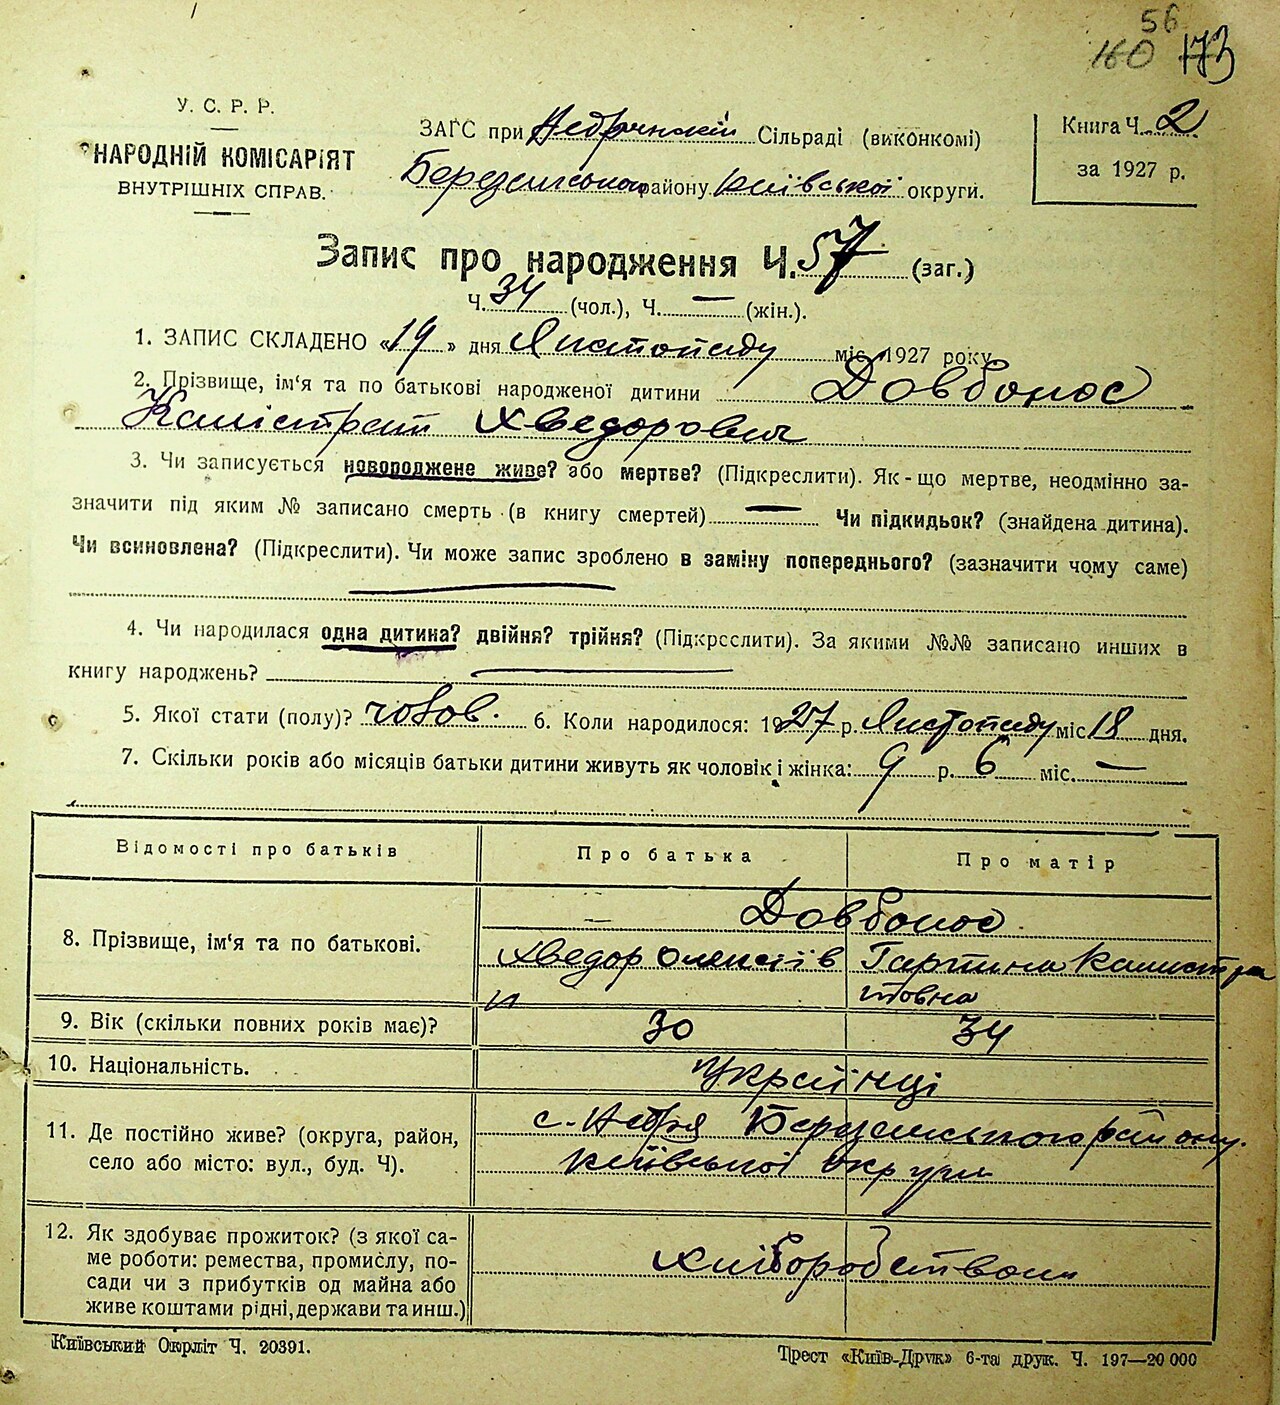 56
160 173
У. С. Р. Р.
НАРОДНІЙ КОМІСАРІЯТ
ВНУТРІШНІХ СПРАВ.
ЗАГС при Недринскій Сільраді (виконкомі)
Березанського району Київської округи.
Книга Ч. 2
за 1927 р.
Запис про народження Ч. 57 (заг.)
Ч. 34 (чол.), Ч. — (жін.).
1. ЗАПИС СКЛАДЕНО «19» дня Листопаду міс. 1927 року
2. Прізвище, ім‘я та по батькові народженої дитини Довбонос
Калістрат Хведорович
3. Чи записується новороджене живе? або мертве? (Підкреслити). Як-що мертве, неодмінно за-
значити під яким № записано смерть (в книгу смертей) — Чи підкидьок? (знайдена дитина).
Чи всиновлена? (Підкреслити). Чи може запис зроблено в заміну попереднього? (зазначити чому саме)
4. Чи народилася одна дитина? двійня? трійня? (Підкреслити). За якими №№ записано инших в
книгу народжень?
5. Якої стати (полу)? чолов. 6. Коли народилося: 1927 р. Листопаду міс 18 дня.
7. Скільки років або місяців батьки дитини живуть як чоловік і жінка: 9 р. 6 міс. —
Відомості про батьків Про батька Про матір
8. Прізвище, ім‘я та по батькові.
— Довбонос
Хведор Олексіїв Гарпина Калистра
и товна
9. Вік (скільки повних років має)? 30 34
10. Національність. Українці
11. Де постійно живе? (округа, район,
село або місто: вул., буд. Ч).
с. Недря Березанського району.
Київської округи
12. Як здобуває прожиток? (з якої са-
ме роботи: ремества, промислу, по-
сади чи з прибутків од майна або
живе коштами рідні, держави та инш.)
Хліборобством
Київський Окрліт Ч. 20391.
Трест «Київ-Друк» 6-та друк. Ч. 197—20 000